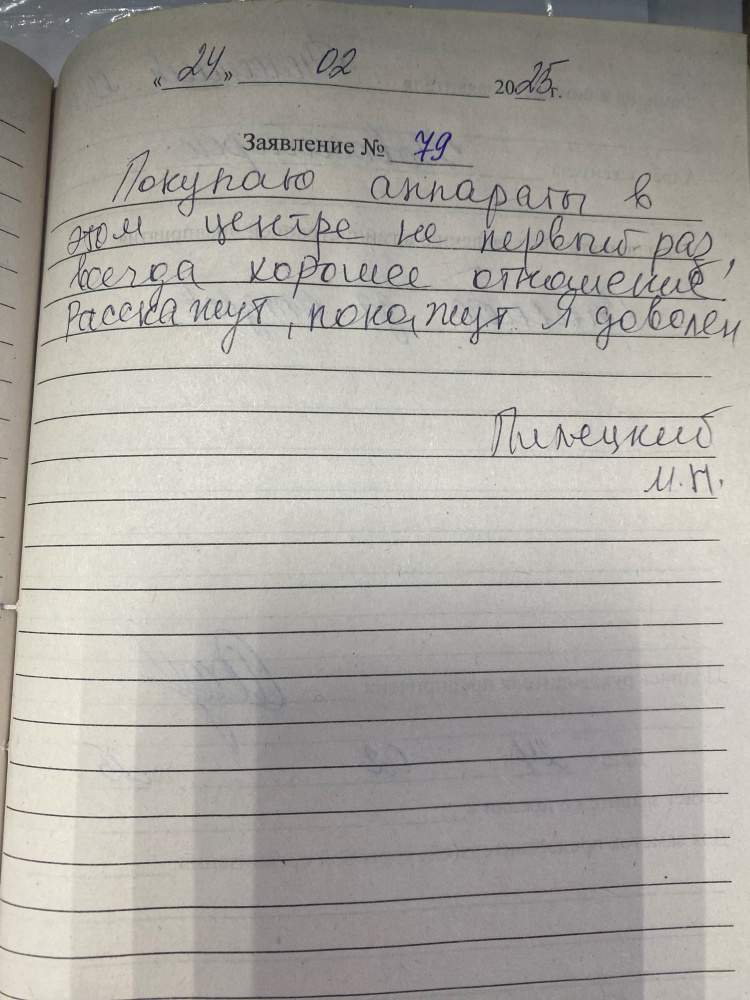 «24» 02 2025г.
Заявление № 79
Покупаю аппараты в
этом центре не первый раз,
всегда хорошее отношение
Расскажут, покажут я доволен
М.Н.